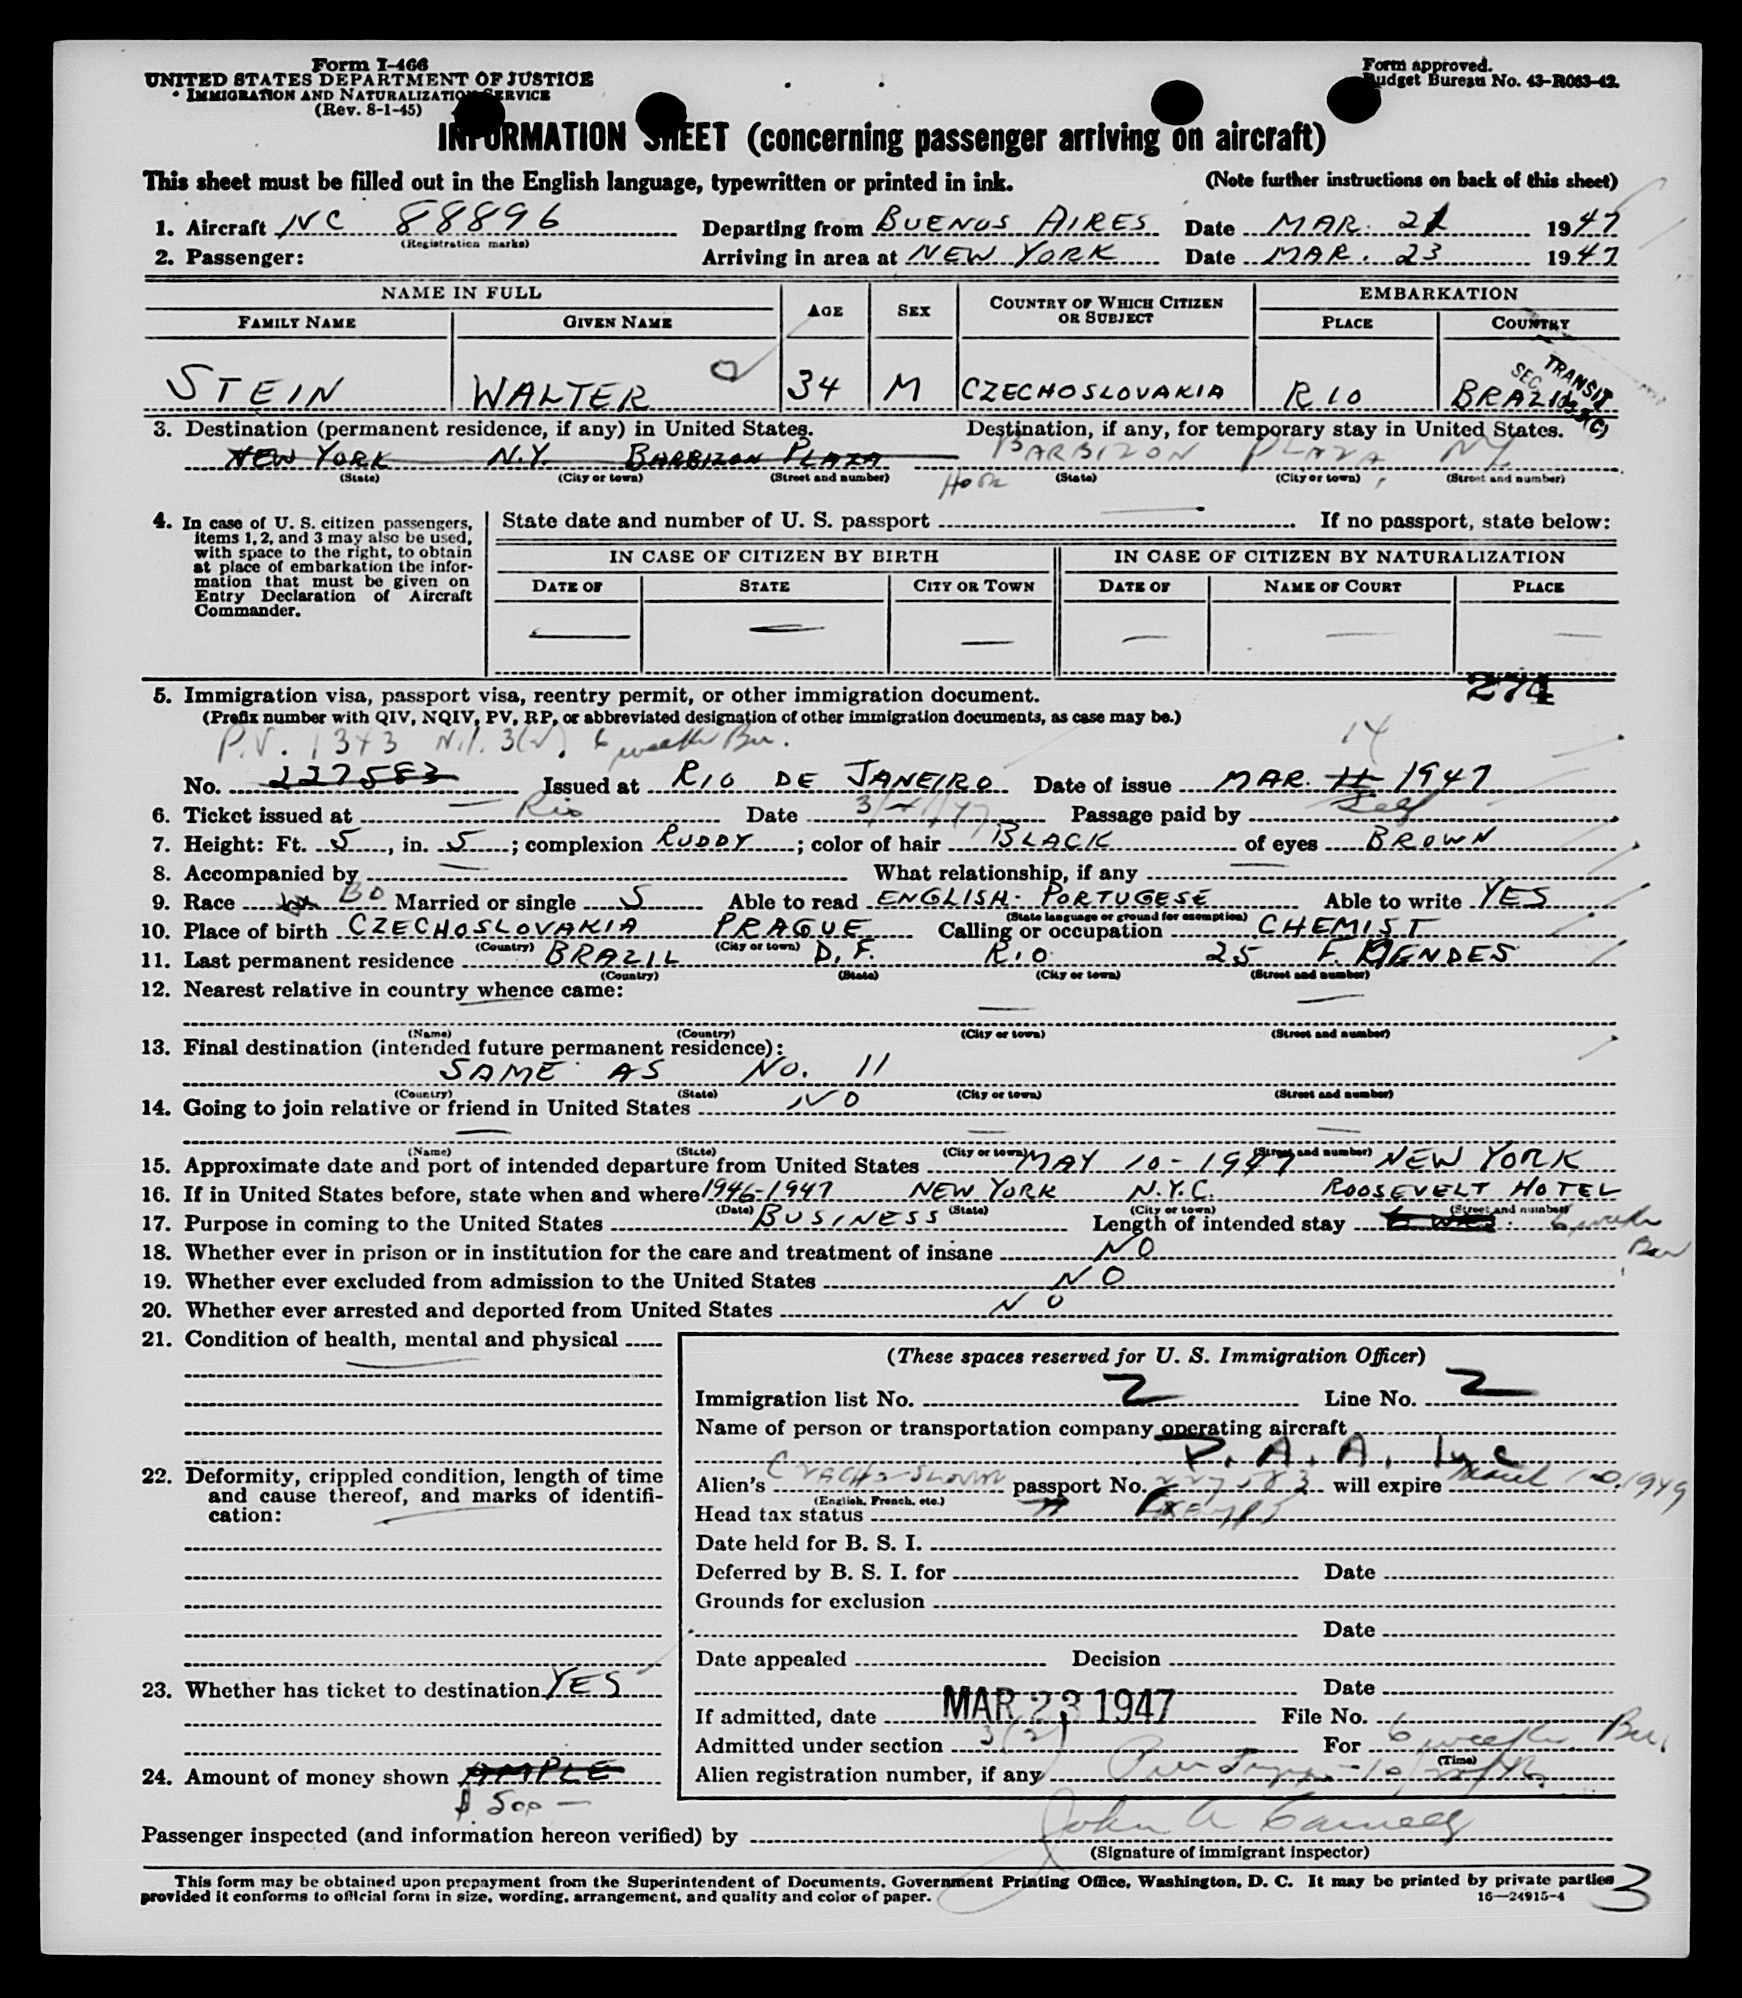 Form I-466
UNITED STATES DEPARTMENT OF JUSTICE
IMMIGRATION AND NATURALIZATION SERVICE
(Rev. 8-1-45)
Form approved.
Budget Bureau No. 43-R083-42.
INFORMATION SHEET (concerning passenger arriving on aircraft)
This sheet must be filled out in the English language, typewritten or printed in ink. (Note further instructions on back of this sheet)
1. Aircraft NC 88896 Departing from BUENOS AIRES Date MAR. 21 1947
(Registration marks)
2. Passenger: Arriving in area at NEW YORK Date MAR. 23 1947
NAME IN FULL AGE SEX COUNTRY OF WHICH CITIZEN OR SUBJECT EMBARKATION
FAMILY NAME GIVEN NAME PLACE COUNTRY
TRANSIT
SEC.
STEIN WALTER 34 M CZECHOSLOVAKIA RIO BRAZIL
3. Destination (permanent residence, if any) in United States. Destination, if any, for temporary stay in United States.
NEW YORK N.Y. BARBIZON PLAZA BARBIZON PLAZA, NY
(State) (City or town) (Street and number) (State) (City or town) (Street and number)
4. In case of U. S. citizen passengers, items 1, 2, and 3 may also be used, with space to the right, to obtain at place of embarkation the information that must be given on Entry Declaration of Aircraft Commander.
State date and number of U. S. passport — If no passport, state below:
IN CASE OF CITIZEN BY BIRTH IN CASE OF CITIZEN BY NATURALIZATION
DATE OF STATE CITY OR TOWN DATE OF NAME OF COURT PLACE
— — — — — —
274
5. Immigration visa, passport visa, reentry permit, or other immigration document.
(Prefix number with QIV, NQIV, PV, RP, or abbreviated designation of other immigration documents, as case may be.)
P.V. 1343 3(2). 6 weeks Bu. 14
No. 227583 Issued at RIO DE JANEIRO Date of issue MAR. 11 1947
6. Ticket issued at Rio Date 3/ /47 Passage paid by Self
7. Height: Ft. 5, in. 5; complexion RUDDY; color of hair BLACK of eyes BROWN
8. Accompanied by — What relationship, if any —
9. Race BO Married or single S Able to read ENGLISH - PORTUGESE Able to write YES
(State language or ground for exemption)
10. Place of birth CZECHOSLOVAKIA PRAGUE Calling or occupation CHEMIST
(Country) (City or town)
11. Last permanent residence BRAZIL D.F. RIO 25 F. MENDES
(Country) (State) (City or town) (Street and number)
12. Nearest relative in country whence came:
— — —
(Name) (Country) (City or town) (Street and number)
13. Final destination (intended future permanent residence):
SAME AS NO. 11
(Country) (State) (City or town) (Street and number)
14. Going to join relative or friend in United States NO
— — —
(Name) (State) (City or town) (Street and number)
15. Approximate date and port of intended departure from United States MAY 10 - 1947 NEW YORK
16. If in United States before, state when and where 1946-1947 NEW YORK N.Y.C. ROOSEVELT HOTEL
(Date) (State) (City or town) (Street and number)
17. Purpose in coming to the United States BUSINESS Length of intended stay 6 WKS. 6 weeks
Bu
18. Whether ever in prison or in institution for the care and treatment of insane NO
19. Whether ever excluded from admission to the United States NO
20. Whether ever arrested and deported from United States NO
21. Condition of health, mental and physical
—
22. Deformity, crippled condition, length of time and cause thereof, and marks of identification:
—
23. Whether has ticket to destination YES
24. Amount of money shown AMPLE
$ 500 —
(These spaces reserved for U. S. Immigration Officer)
Immigration list No. 2 Line No. 2
Name of person or transportation company operating aircraft
P. A. A. Inc
Alien's passport No. 227583 will expire March 10, 1949
(English, French, etc.)
Head tax status Exempt
Date held for B. S. I.
Deferred by B. S. I. for Date
Grounds for exclusion
Date
Date appealed Decision
Date
If admitted, date MAR 23 1947 File No.
Admitted under section 3(2) For 6 weeks Bu.
(Time)
Alien registration number, if any
Passenger inspected (and information hereon verified) by John A
(Signature of immigrant inspector)
This form may be obtained upon prepayment from the Superintendent of Documents, Government Printing Office, Washington, D. C. It may be printed by private parties
provided it conforms to official form in size, wording, arrangement, and quality and color of paper. 16—24915-4
3